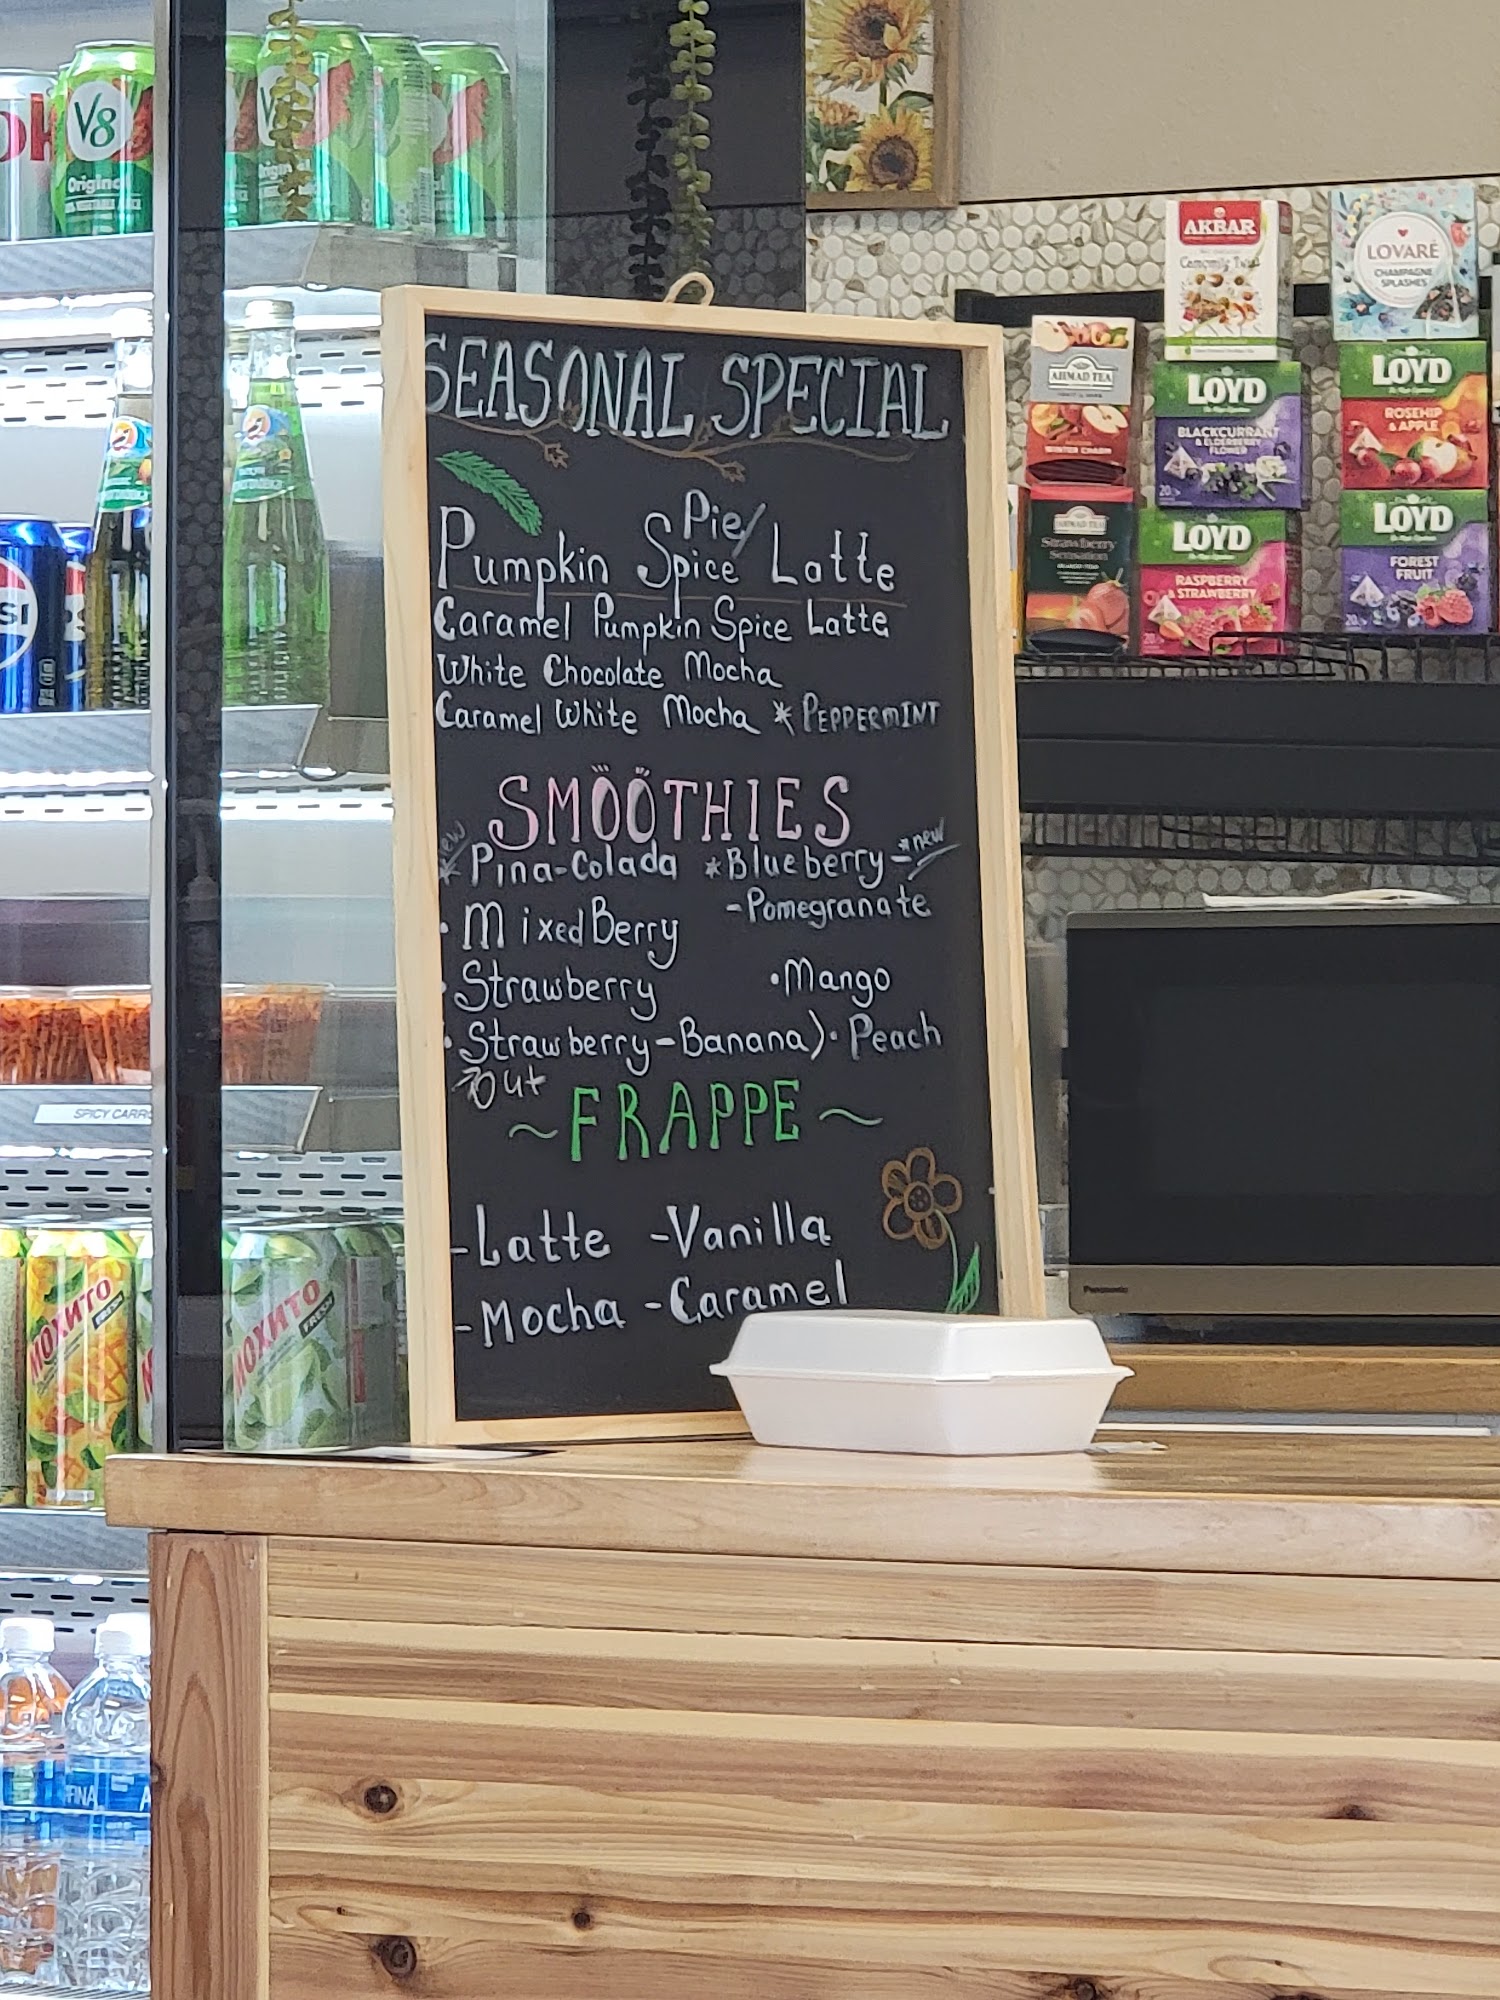 V8
Original
SEASONAL SPECIAL
Pie/
Pumpkin Spice Latte
Caramel Pumpkin Spice Latte
White Chocolate Mocha
Caramel White Mocha * PEPPERMINT
SMOOTHIES
new
* Pina-Colada *Blueberry- *new
-Pomegranate
· MixedBerry
· Strawberry ·Mango
· Strawberry-Banana) · Peach
out
~FRAPPE~
-Latte -Vanilla
-Mocha -Caramel
AKBAR
LOVARÉ
CHAMPAGNE
SPLASHES
AHMAD TEA
WINTER CHARM
LOYD
BLACKCURRANT
& ELDERBERRY
FLOWER
LOYD
ROSEHIP
& APPLE
AHMAD TEA
Strawberry
Sensation
LOYD
RASPBERRY
& STRAWBERRY
LOYD
FOREST
FRUIT
Panasonic
SPICY CARR
МОХИТО
FRESH
МОХИТО
FRESH
FINA